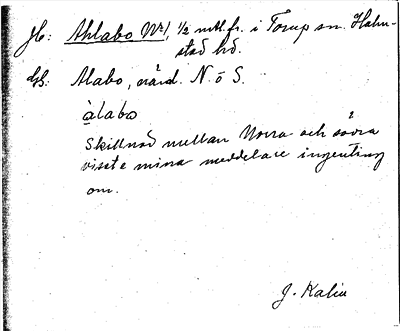 Jb: Ahlabo Nr 1, 1/2 mtl. fr. i Torup sn. Halm-
stad hd.
Gb: Alabo, vård. N. o S.
àlabo
Skillnad mellan Norra och södra
visste mina meddelare ingenting
om.
J. Kalén